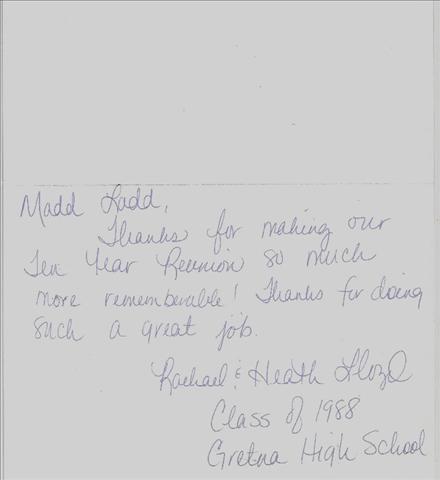 Madd Ladd,
Thanks for making our
Ten Year Reunion so much
more rememberable! Thanks for doing
such a great job.
Rachael & Heath Floyd
Class of 1988
Gretna High School